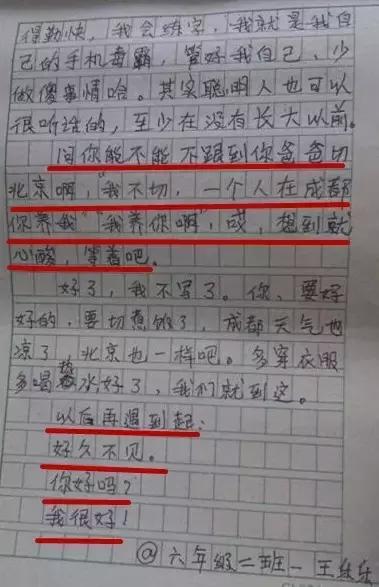 得勤快，我会练字，我就是我自
己的手机毒霸，管好我自己、少
做傻事情哈。其实聪明人也可以
很听话的，至少在没有长大以前。
问你能不能不跟到你爸爸切
北京啊，“我不切，一个人在成都
你养我”“我养你啊”，哎，想到就
心酸，等着吧。
好了，我不写了。你、要好
好的，要切惫饿了，成都天气也
凉了，北京也一样吧。多穿衣服
多喝热水好了，我们就到这。
以后再遇到起：
好久不见。
你好吗？
我很好！
@六年级二班一王乐乐